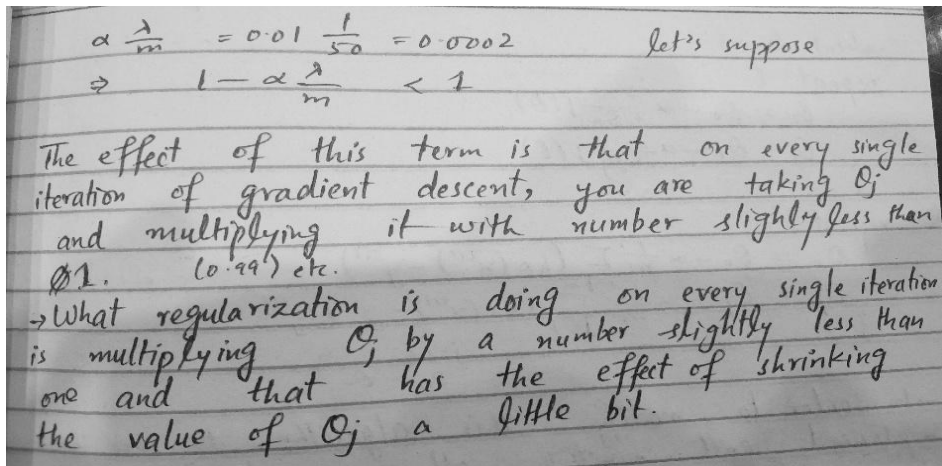 α λ/m = 0.01 1/50 = 0.0002 let's suppose
⇒ 1 - α λ/m < 1
The effect of this term is that on every single
iteration of gradient descent, you are taking θj
and multiplying it with number slighly less than
1. (0.99) etc.
→ What regularization is doing on every single iteration
is multiplying θj by a number slightly less than
one and that has the effect of shrinking
the value of θj a little bit.